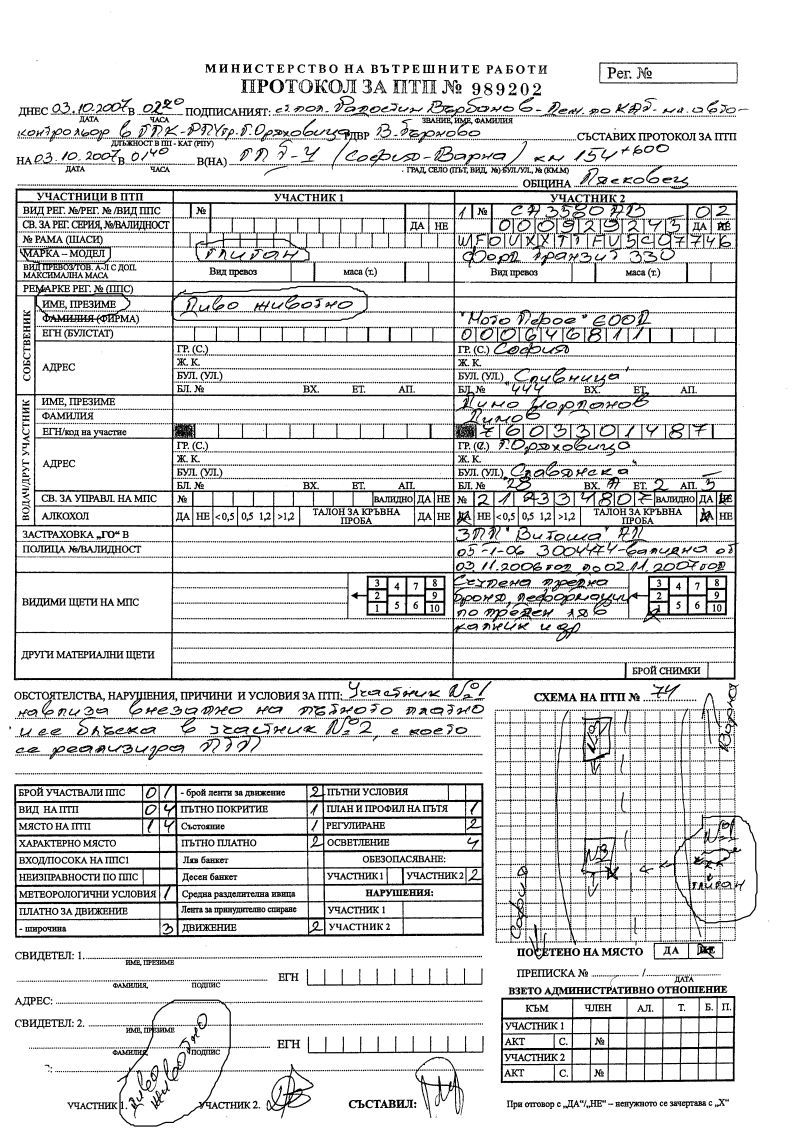 МИНИСТЕРСТВО НА ВЪТРЕШНИТЕ РАБОТИ
Рег. №
ПРОТОКОЛ ЗА ПТП № 989202
ДНЕС 03.10.2007 В 0220 ПОДПИСАНИЯТ:
ДАТА ЧАСА ЗВАНИЕ, ИМЕ, ФАМИЛИЯ
В. Търново СЪСТАВИХ ПРОТОКОЛ ЗА ПТП
ДЛЪЖНОСТ В ПП - КАТ (РПУ)
НА 03.10.2007 В 0140 В(НА) (София-Варна) км 154+600
ДАТА ЧАСА ГРАД, СЕЛО (ПЪТ, ВИД, №) БУЛ./УЛ., № (КМ.М)
ОБЩИНА Лясковец
УЧАСТНИЦИ В ПТП УЧАСТНИК 1 УЧАСТНИК 2
ВИД РЕГ. №/РЕГ. №/ВИД ППС № 1 № 02
СВ. ЗА РЕГ. СЕРИЯ, №/ВАЛИДНОСТ ДА НЕ 000929243 ДА НЕ
№ РАМА (ШАСИ)
МАРКА – МОДЕЛ Глиган Форд Транзит 330
ВИД ПРЕВОЗ/ТОВ. А-Л С ДОП. МАКСИМАЛНА МАСА Вид превоз маса (т.) Вид превоз маса (т.)
РЕМАРКЕ РЕГ. № (ППС)
СОБСТВЕНИК
ИМЕ, ПРЕЗИМЕ Диво животно
ФАМИЛИЯ (ФИРМА) "Мото Пфое" ЕООД
ЕГН (БУЛСТАТ) 000646811
АДРЕС
ГР. (С.) ГР. (С.) София
Ж. К. Ж. К.
БУЛ. (УЛ.) БУЛ. (УЛ.) "Сливница"
БЛ. № ВХ. ЕТ. АП. БЛ. № 444 ВХ. ЕТ. АП.
ВОДАЧ/ДРУГ УЧАСТНИК
ИМЕ, ПРЕЗИМЕ Димо Йорданов
ФАМИЛИЯ Димов
ЕГН/код на участие 7603301487
АДРЕС
ГР. (С.) ГР. (С.) Г. Оряховица
Ж. К. Ж. К.
БУЛ. (УЛ.) БУЛ. (УЛ.) "Славянска"
БЛ. № ВХ. ЕТ. АП. БЛ. № 28 ВХ. А ЕТ. 2 АП. 5
СВ. ЗА УПРАВЛ. НА МПС № ВАЛИДНО ДА НЕ № ВАЛИДНО ДА НЕ
АЛКОХОЛ ДА НЕ <0,5 0,5 1,2 >1,2 ТАЛОН ЗА КРЪВНА ПРОБА ДА НЕ ДА НЕ <0,5 0,5 1,2 >1,2 ТАЛОН ЗА КРЪВНА ПРОБА ДА НЕ
ЗАСТРАХОВКА „ГО" В ЗПП "Витоша" АД
ПОЛИЦА №/ВАЛИДНОСТ 05-1-06 3004474-валидна от
03.11.2006год до 02.11.2007год
ВИДИМИ ЩЕТИ НА МПС
3 4 7 8
2 9
1 5 6 10
Счупена предна
броня, деформации
по преден ляв
калник и др
3 4 7 8
2 9
1 5 6 10
ДРУГИ МАТЕРИАЛНИ ЩЕТИ
БРОЙ СНИМКИ
ОБСТОЯТЕЛСТВА, НАРУШЕНИЯ, ПРИЧИНИ И УСЛОВИЯ ЗА ПТП: Участник №1
навлиза внезапно на пътното платно
и се блъска в участник №2, с което
се реализира ПТП
СХЕМА НА ПТП № 74
Варна
№2
№2
№1
глиган
София
БРОЙ УЧАСТВАЛИ ППС 01 - брой ленти за движение 2 ПЪТНИ УСЛОВИЯ
ВИД НА ПТП 04 ПЪТНО ПОКРИТИЕ 1 ПЛАН И ПРОФИЛ НА ПЪТЯ 1
МЯСТО НА ПТП 14 Състояние 1 РЕГУЛИРАНЕ 2
ХАРАКТЕРНО МЯСТО ПЪТНО ПЛАТНО 2 ОСВЕТЛЕНИЕ 4
ВХОД/ПОСОКА НА ППС1 Ляв банкет ОБЕЗОПАСЯВАНЕ:
НЕИЗПРАВНОСТИ ПО ППС Десен банкет УЧАСТНИК 1 УЧАСТНИК 2 2
МЕТЕОРОЛОГИЧНИ УСЛОВИЯ 1 Средна разделителна ивица НАРУШЕНИЯ:
ПЛАТНО ЗА ДВИЖЕНИЕ Лента за принудително спиране УЧАСТНИК 1
- широчина 3 ДВИЖЕНИЕ 2 УЧАСТНИК 2
ПОСЕТЕНО НА МЯСТО ДА НЕ
СВИДЕТЕЛ: 1.
ИМЕ, ПРЕЗИМЕ
ЕГН
ФАМИЛИЯ, ПОДПИС
АДРЕС:
СВИДЕТЕЛ: 2.
ИМЕ, ПРЕЗИМЕ
ЕГН
ФАМИЛИЯ, ПОДПИС
ПРЕПИСКА № /
ДАТА
ВЗЕТО АДМИНИСТРАТИВНО ОТНОШЕНИЕ
КЪМ ЧЛЕН АЛ. Т. Б. П.
УЧАСТНИК 1
АКТ С. №
УЧАСТНИК 2
АКТ С. №
УЧАСТНИК 1. Диво животно УЧАСТНИК 2. СЪСТАВИЛ:
При отговор с „ДА"/„НЕ" – ненужното се зачертава с „Х"